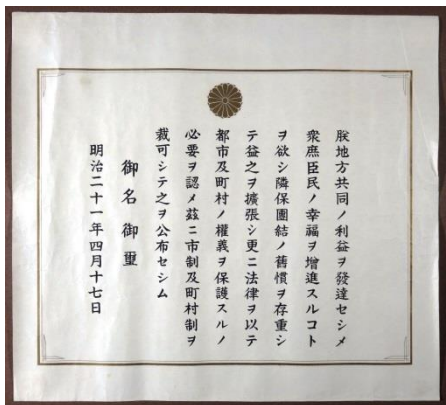 朕地方共同ノ利益ヲ發達セシメ
衆庶臣民ノ幸福ヲ增進スルコト
ヲ欲シ隣保團結ノ舊慣ヲ存重シ
テ益之ヲ擴張シ更ニ法律ヲ以テ
都市及町村ノ權義ヲ保護スルノ
必要ヲ認メ茲ニ市制及町村制ヲ
裁可シテ之ヲ公布セシム
御名御璽
明治二十一年四月十七日